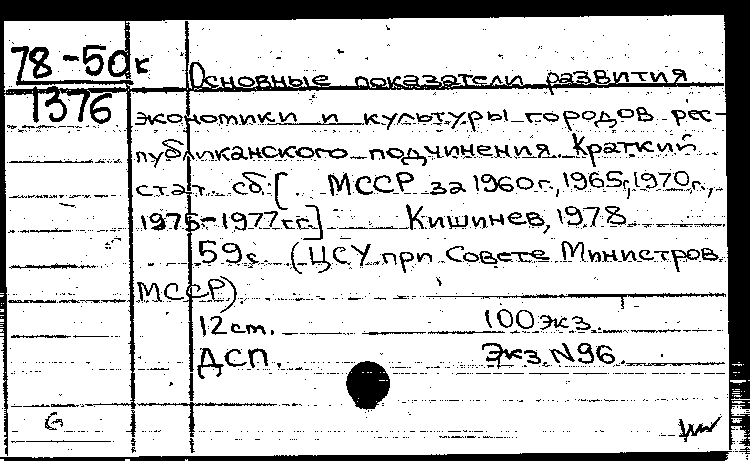 78-50к
1376
Основные показатели развития
экономики и культуры городов рес-
публиканского подчинения. Краткий
стат. сб. [. МССР за 1960г., 1965г., 1970г.,
1975-1977гг.] Кишинев, 1978
59с (ЦСУ при Совете Министров
МССР).
12см. 100 экз.
ДСП. Экз. N96.
G